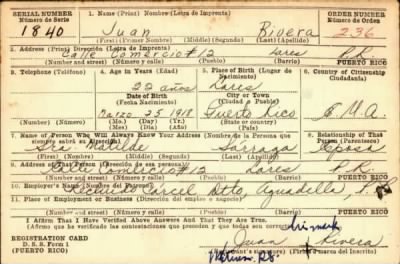 SERIAL NUMBER
Número de Serie
1840
1. Name (Print) Nombre (Letra de Imprenta)
Juan Rivera
(First) (Primer Nombre) (Middle) (Segundo) (Last) (Apellido)
ORDER NUMBER
Número de Orden
236
2. Address (Print) Dirección (Letra de Imprenta)
Calle Comercio #12 Lares P.R.
(Number and street) (Número y calle) (Town) (Pueblo) PUERTO RICO
3. Telephone (Teléfono)
4. Age in Years (Edad)
22 años
Date of Birth
(Fecha Nacimiento)
Marzo 25 1918
(Mo.) (Day) (Yr.)
(Mes) (Día) (Año)
5. Place of Birth (Lugar de Nacimiento)
Lares
City or Town
(Ciudad o Pueblo)
Puerto Rico
(State or country)
(Estado o país)
6. Country of Citizenship
Ciudadanía
7. Name of Person Who Will Always Know Your Address (Nombre de la Persona que
siempre sabrá su dirección)
Sra. Matilde
(First) (Primer nombre) (Middle) (Segundo) (Last) (Apellido)
8. Relationship of That
Person (Parentesco)
Esposa
9. Address of That Person (Dirección de esa persona)
Calle Comercio #12 Lares P.R.
(Number and street) (Número y calle) (Town) (Pueblo) PUERTO RICO
10. Employer's Name (Nombre del Patrono)
Recluido Carcel Dtto, Aguadilla, P.R.
11. Place of Employment or Business (Dirección del empleo o negocio)
(Number and street) (Número y calle) (Town) (Pueblo) PUERTO RICO
I Affirm That I Have Verified Above Answers and That They are True.
(Afirmo que he verificado las contestaciones que preceden y que todas son ciertas)
REGISTRATION CARD
D. S. S. Form 1
PUERTO RICO
his mark
Juan Rivera